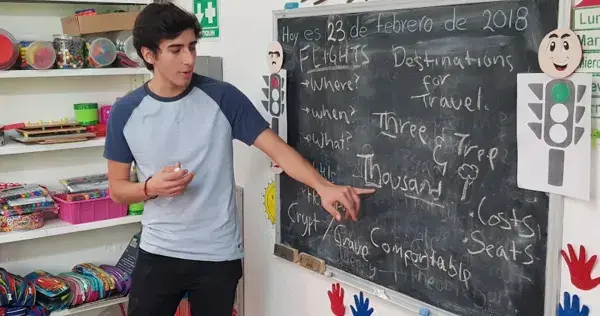 Hoy es 23 de febrero de 2018
FLIGHTS
→Where?
→when?
→What?
Destinations
for
Travel.
Three & Tree
Thousand
Crypt/Grave
Comfortable
•Costs
•Seats
Lun
Mar
Miérc